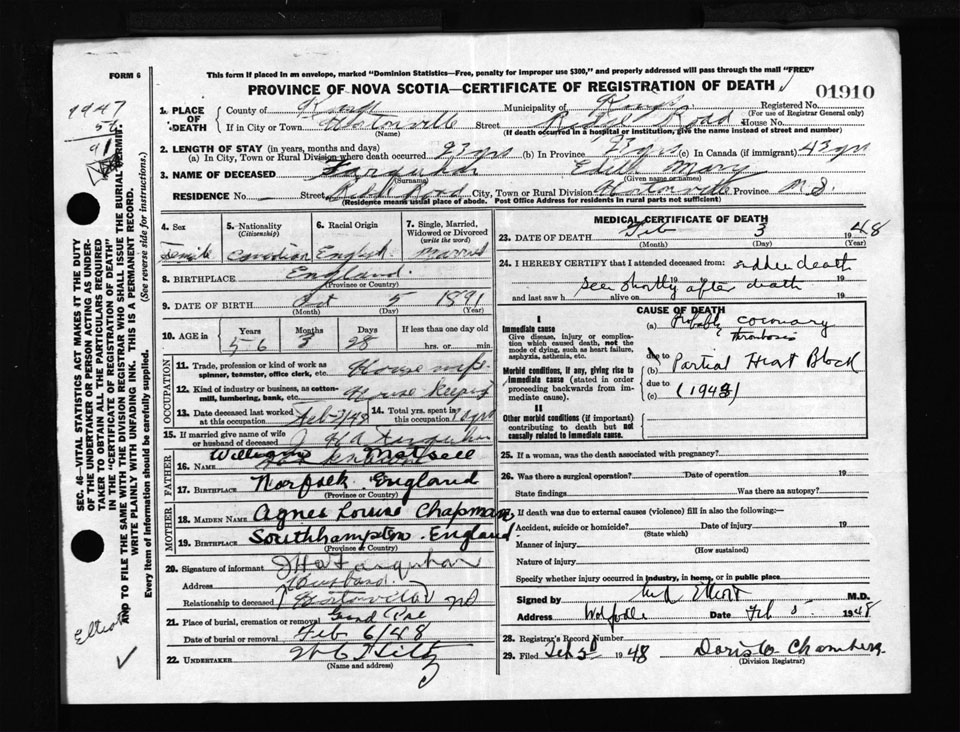 This form if placed in an envelope, marked "Dominion Statistics—Free, penalty for improper use $300," and properly addressed will pass through the mail "FREE"
FORM 6
PROVINCE OF NOVA SCOTIA—CERTIFICATE OF REGISTRATION OF DEATH
01910
1947
56
91
1. PLACE OF DEATH
County of Kings Municipality of Kings Registered No.
(For use of Registrar General only)
If in City or Town Hortonville Street Ridge Road House No.
(Name) (If death occurred in a hospital or institution, give the name instead of street and number)
2. LENGTH OF STAY (in years, months and days)
(a) In City, Town or Rural Division where death occurred 23 yrs (b) In Province 23 yrs (c) In Canada (if immigrant) 43 yrs
3. NAME OF DECEASED Farquhar Edith Mary
(Surname) (Given name or names)
RESIDENCE No. Street Ridge Road City, Town or Rural Division Hortonville Province N.S.
(Residence means usual place of abode. Post Office Address for residents in rural parts not sufficient)
4. Sex 5. Nationality (Citizenship) 6. Racial Origin 7. Single, Married, Widowed or Divorced (write the word)
Female Canadian English Married
8. BIRTHPLACE England
(Province or Country)
9. DATE OF BIRTH Oct 5 1891
(Month) (Day) (Year)
10. AGE Years Months Days If less than one day old
56 3 28 hrs. or min.
OCCUPATION
11. Trade, profession or kind of work as spinner, teamster, office clerk, etc. House wife
12. Kind of industry or business, as cotton-mill, lumbering, bank, etc. House keeping
13. Date deceased last worked at this occupation Feb 2/48 14. Total yrs. spent in this occupation yrs
15. If married give name of wife or husband of deceased J H A Farquhar
FATHER
16. NAME William
17. BIRTHPLACE Norfolk England
(Province or Country)
MOTHER
18. MAIDEN NAME Agnes Louise Chapman
19. BIRTHPLACE Southhampton England
(Province or Country)
20. Signature of informant J H A Farquhar
Address
Relationship to deceased Husband.
Hortonville NS
21. Place of burial, cremation or removal Grand Pre
Date of burial or removal Feb 6/48
22. UNDERTAKER W C Hiltz
(Name and address)
MEDICAL CERTIFICATE OF DEATH
23. DATE OF DEATH Feb 3 1948
(Month) (Day) (Year)
24. I HEREBY CERTIFY that I attended deceased from: sudden death
seen shortly after death 19 19
and last saw h alive on 19
CAUSE OF DEATH
I
Immediate cause
Give disease, injury or complication which caused death, not the mode of dying, such as heart failure, asphyxia, asthenia, etc.
(a) Probably coronary thrombosis
due to
Morbid conditions, if any, giving rise to immediate cause (stated in order proceeding backwards from immediate cause).
(b) Partial Heart Block
due to
(c) (1943)
II
Other morbid conditions (if important) contributing to death but not causally related to immediate cause.
25. If a woman, was the death associated with pregnancy?
26. Was there a surgical operation? Date of operation 19
State findings Was there an autopsy?
27. If death was due to external causes (violence) fill in also the following:—
Accident, suicide or homicide? Date of injury 19
(State which)
Manner of injury
(How sustained)
Nature of injury
Specify whether injury occurred in industry, in home, or in public place
Signed by Elliott M.D.
Address Wolfville Date Feb 5 1948
28. Registrar's Record Number
29. Filed Feb 1948 Doris Chambers
(Division Registrar)
SEC. 46—VITAL STATISTICS ACT MAKES IT THE DUTY
OF THE UNDERTAKER OR PERSON ACTING AS UNDERTAKER TO OBTAIN ALL THE PARTICULARS REQUIRED
IN THE "CERTIFICATE OF REGISTRATION OF DEATH"
AND TO FILE THE SAME WITH THE DIVISION REGISTRAR WHO SHALL ISSUE THE BURIAL PERMIT.
WRITE PLAINLY WITH UNFADING INK. THIS IS A PERMANENT RECORD.
Every item of information should be carefully supplied. (See reverse side for instructions.)
Elliott